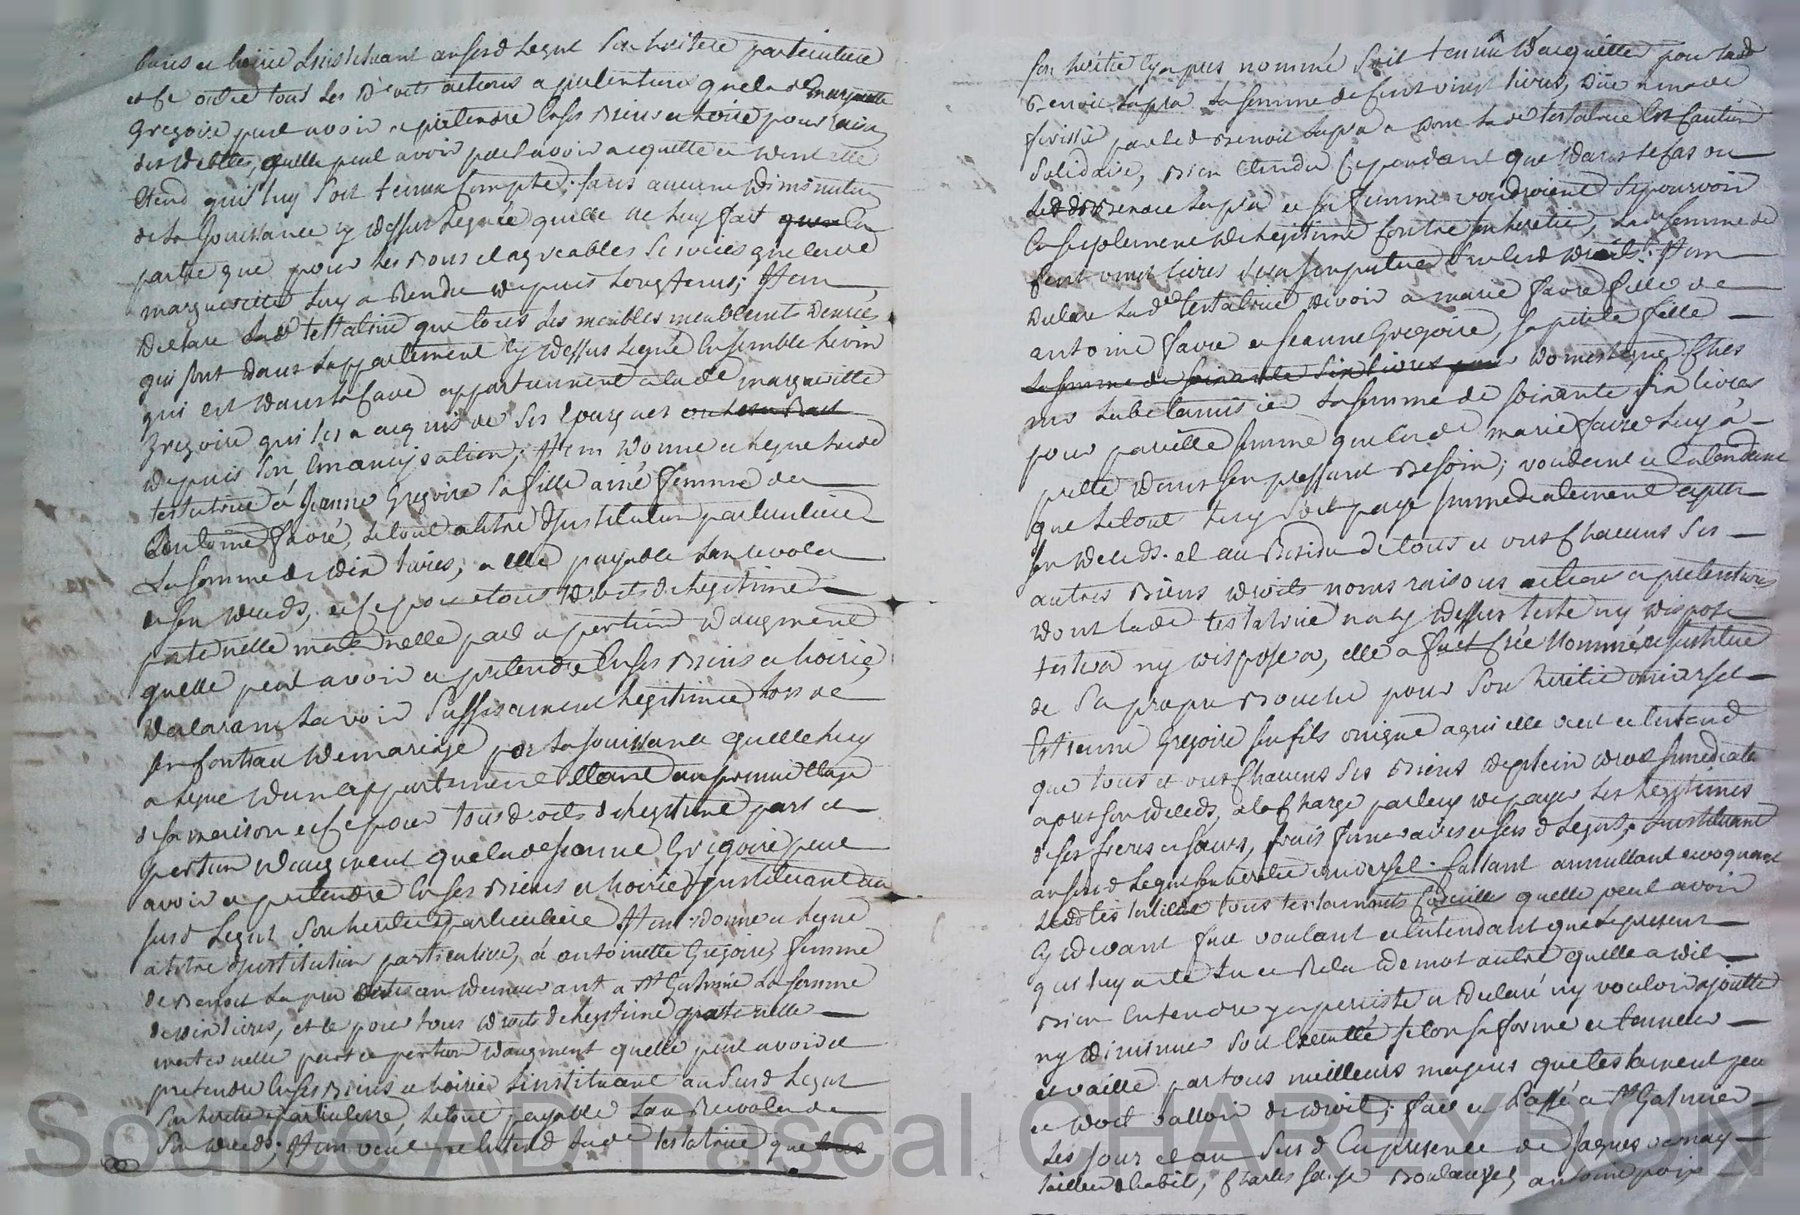 biens et hoirie l'instituant au susd legat son heritiere particuliere
et ce outre tous les droits actions et pretentions que lade marguerite
Gregoire peut avoir et pretendre en ses biens et hoirie pour raison
des dettes, quelle peut avoir peut avoir acquitté et dont elle
etend quil luy soit tenu compte; sans aucune diminution
de la jouissance cy dessus leguée quelle ne luy fait que la
partie que pour les bons et agreables services que lade
marguerite luy a rendu depuis longtems; Item
declare lade testatrice que tous les meubles meublents denrée
qui sont dans lappartement cy dessus legué ensemble le vin
qui est dans la cave appartiennent a lade marguerite
gregoire qui les a acquis de ses epargnes
depuis son emancipation; Item donne et legue lade
testatrice à Jeanne Gregoire sa fille ainé femme de
antoine favre, le tout a titre dinstitution particuliere
la somme de dix livres, a elle payable lan revolu
de son deceds, et ce pour tous droits de legitime
paternelle maternelle part et portion daugment
quelle peut avoir et pretendre en ses biens et hoirie,
declarant lavoir suffisament legitimée lors de
son contrat de mariage par la jouissance quelle luy
a legué dun appartement dans au premier etage
de sa maison et ce pour tous droits de legitime part et
portion daugment que lade Jeanne Gregoire peut
avoir et pretendre en ses biens et hoirie, linstituant au
susd legat son heritiere particuliere Item donne et legue
a titre dinstitution particuliere, à antoinette Gregoire, femme
de Benoit Lapra demeurant a St Galmier la somme
de dix livres, et ce pour tous droits de legitime paternelle
maternelle part et portion daugment quelle peut avoir et
pretendre en ses biens et hoirie linstituant au susd legat
son heritiere particuliere, le tout payable lan revolu de
son deceds. Item veut et entend lade testatrice que
son heritier cy apres nommé soit tenu dacquitter pour led
Benoit Lapra la somme de cent vingt livres, due a made
par led Benoit Lapra et dont lade testatrice est caution
solidaire, bien entendu cependant que dans le cas ou
led Benoit Lapra et sa femme voudroient se pourvoir
en suplement de legitime contre son heritier, lade somme de
cent vingt livres sera imputée sur led droits. Item
declare lade testatrice devoir a marie favre fille de
antoine favre et Jeanne Gregoire, sa petite fille
la somme de soixante six livres domestique chés
la somme de soixante six livres
pour pareille somme que lade marie favre luy à
preté dans son pressant besoin; voulant et entendant
que le tout luy soit payé immediatement apres
son deceds. et au residu de tous et uns chacuns ses
autres biens droits noms raisons actions et pretentions
dont lade testatrice na cy dessus testé ny disposé
testera ny disposera, elle a fait créé nommé et institué
de sa propre bouche pour son heritier universel
Estienne Gregoire son fils unique a qui elle veut et entend
que tous et uns chacuns ses biens de plein droit immediate
apres son deceds, a la charge par luy de payer les legitimes
de ses freres et sœurs, frais funeraires et susd legats, linstituant
au susd legat son heritier universel. Cassant annullant revoquant
lade testatrice tous testaments codicilles quelle peut avoir
cy devant fait voulant et entendant que le present
qui luy a eté lu et relu de mot autre quelle a dit
bien entendre y a persisté et declaré ny vouloir ajouter
ny diminuer soit executé selon sa forme et teneur
et vaille par tous meilleurs moyens que testament peu
et doit valloir de droit; fait et passé a St Galmier
les jour et an susd en presence de Jaques vernay
tailleur dhabits, Charles boulanger, antoine
Source AD Pascal CHAREYRON